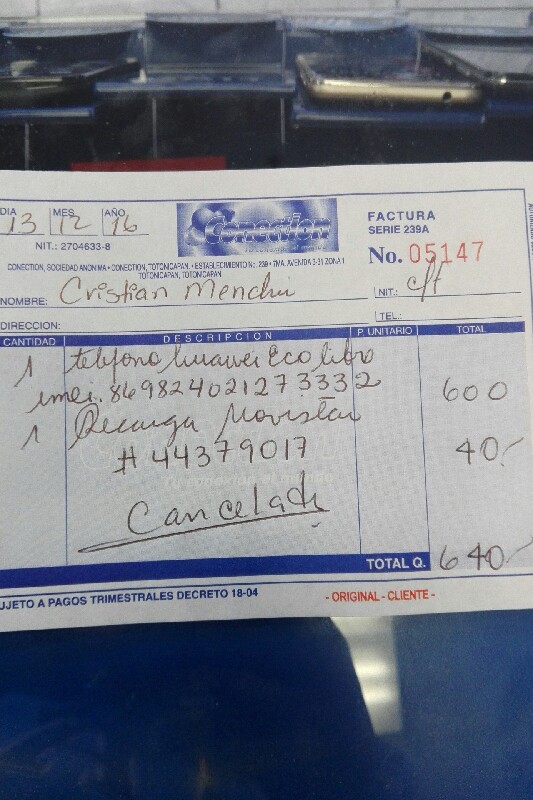 DIA MES AÑO
13 12 16
NIT.: 2704633-8
Conection
FACTURA
SERIE 239A
No. 05147
CONECTION, SOCIEDAD ANONIMA • CONECTION, TOTONICAPAN. • ESTABLECIMIENTO No. 239 • 7MA. AVENIDA 5-31 ZONA 1
TOTONICAPAN, TOTONICAPAN
NOMBRE: Cristian Menchu NIT.: c/f
DIRECCION: TEL.:
CANTIDAD DESCRIPCION P. UNITARIO TOTAL
1 telefono huawei Eco libro
imei. 869824021273332 600
1 Recarga Movistar
# 44379017 40.-
Tu conexión al mundo
Cancelado
TOTAL Q. 640.-
UJETO A PAGOS TRIMESTRALES DECRETO 18-04 - ORIGINAL - CLIENTE -